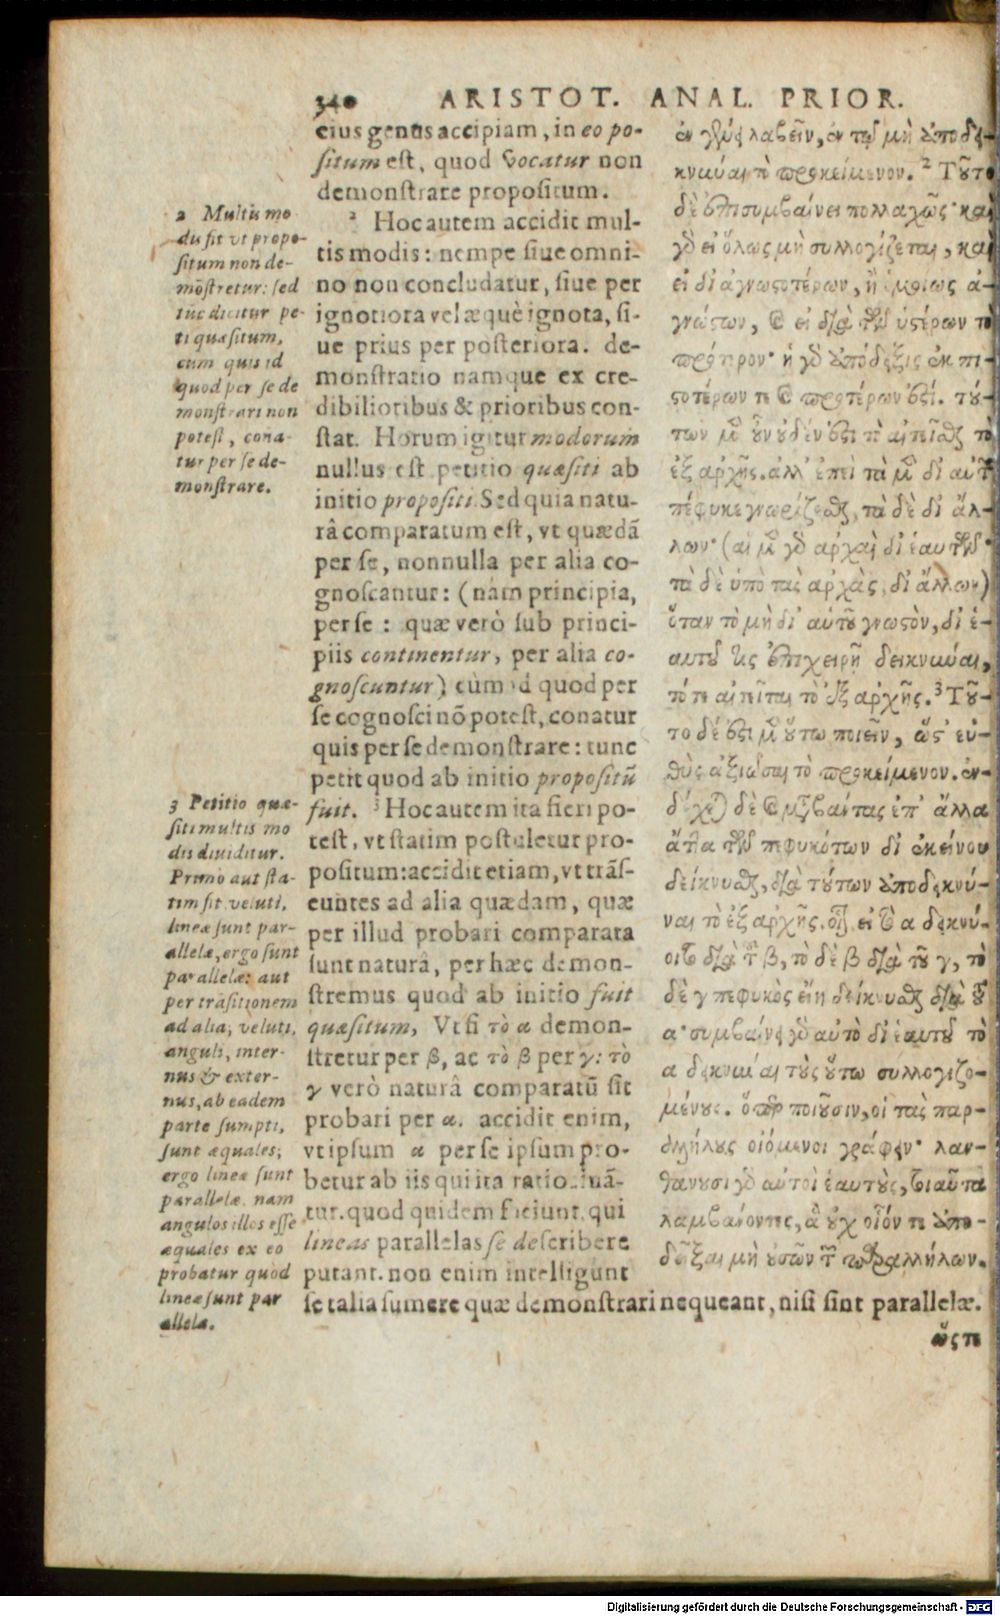 340 ARISTOT. ANAL. PRIOR.
eius genus accipiam, in eo po-
situm est, quod vocatur non
demonstrare propositum.
2 Hoc autem accidit mul-
tis modis: nempe siue omni-
no non concludatur, siue per
ignotiora vel æquè ignota, si-
ue prius per posteriora. de-
monstratio namque ex cre-
dibilioribus & prioribus con-
stat. Horum igitur modorum
nullus est petitio quæsiti ab
initio propositi. Sed quia natu-
râ comparatum est, vt quædã
per se, nonnulla per alia co-
gnoscantur: (nam principia,
per se: quæ verò sub princi-
piis continentur, per alia co-
gnoscuntur) cùm id quod per
se cognosci nõ potest, conatur
quis per se demonstrare: tunc
petit quod ab initio propositũ
fuit. 3 Hoc autem ita fieri po-
test, vt statim postuletur pro-
positum: accidit etiam, vt trãs-
euntes ad alia quædam, quæ
per illud probari comparata
sunt naturâ, per hæc demon-
stremus quod ab initio fuit
quæsitum, Vt si τὸ α demon-
stretur per β, ac τὸ β per γ: τὸ
γ verò naturâ comparatũ sit
probari per α. accidit enim,
vt ipsum α per se ipsum pro-
betur ab iis qui ita ratiocinã-
tur. quod quidem faciunt, qui
lineas parallelas se describere
putant. non enim intelligunt
se talia sumere quæ demonstrari nequeant, nisi sint parallelæ.
2 Multis mo
dis fit vt propo-
situm non de-
mõstretur: sed
tũc dicitur pe-
ti quæsitum,
cum quis id
quod per se de
monstrari non
potest, cona-
tur per se de-
monstrare.
3 Petitio quæ-
siti multis mo
dis diuiditur.
Primo aut sta-
tim fit veluti,
lineæ sunt par-
allelæ, ergo sunt
parallelæ: aut
per trãsitionem
ad alia, veluti,
anguli, inter-
nus & exter-
nus, ab eadem
parte sumpti,
sunt æquales;
ergo lineæ sunt
parallelæ. nam
angulos illos esse
æquales ex eo
probatur quod
lineæ sunt par
allelæ.
ἐν γένει λαβεῖν, ἐν τῷ μὴ ἀποδει-
κνύναι τὸ προκείμενον. 2 Τοῦτο
δὲ ἐπισυμβαίνει πολλαχῶς· καὶ
γὰρ εἰ ὅλως μὴ συλλογίζεται, καὶ
εἰ δι' ἀγνωστοτέρων, ἢ ὁμοίως ἀ-
γνώστων, καὶ εἰ διὰ τῶν ὑστέρων τὸ
πρότερον· ἡ γὰρ ἀπόδειξις ἐκ πι-
στοτέρων τε καὶ προτέρων ἐστί. τού-
των μὲν οὖν οὐδέν ἐστι τὸ αἰτεῖσθαι τὸ
ἐξ ἀρχῆς. ἀλλ' ἐπεὶ τὰ μὲν δι' αὑτῶν
πέφυκε γνωρίζεσθαι, τὰ δὲ δι' ἄλ-
λων· (αἱ μὲν γὰρ ἀρχαὶ δι' ἑαυτῶν·
τὰ δὲ ὑπὸ τὰς ἀρχὰς, δι' ἄλλων)
ὅταν τὸ μὴ δι' αὑτοῦ γνωστὸν, δι' ἑ-
αυτοῦ τις ἐπιχειρῇ δεικνύναι,
τότε αἰτεῖται τὸ ἐξ ἀρχῆς. 3 Τοῦ-
το δέ ἐστι μὲν οὕτω ποιεῖν, ὥστ' εὐ-
θὺς ἀξιῶσαι τὸ προκείμενον. ἐν-
δέχεται δὲ καὶ μεταβάντας ἐπ' ἄλλα
ἄττα τῶν πεφυκότων δι' ἐκείνου
δείκνυσθαι, διὰ τούτων ἀποδεικνύ-
ναι τὸ ἐξ ἀρχῆς. οἷον, εἰ τὸ α δεικνύ-
οιτο διὰ τοῦ β, τὸ δὲ β διὰ τοῦ γ, τὸ
δὲ γ πεφυκὸς εἴη δείκνυσθαι διὰ τοῦ
α· συμβαίνει γὰρ αὐτὸ δι' ἑαυτοῦ τὸ
α δεικνύναι τοὺς οὕτω συλλογιζο-
μένους. ὅπερ ποιοῦσιν, οἱ τὰς παρ-
αλλήλους οἰόμενοι γράφειν· λαν-
θάνουσι γὰρ αὐτοὶ ἑαυτοὺς, τοιαῦτα
λαμβάνοντες, ἃ οὐχ οἷόν τε ἀπο-
δεῖξαι μὴ οὐσῶν τῶν παραλλήλων.
ὥστε
Digitalisierung gefördert durch die Deutsche Forschungsgemeinschaft - DFG